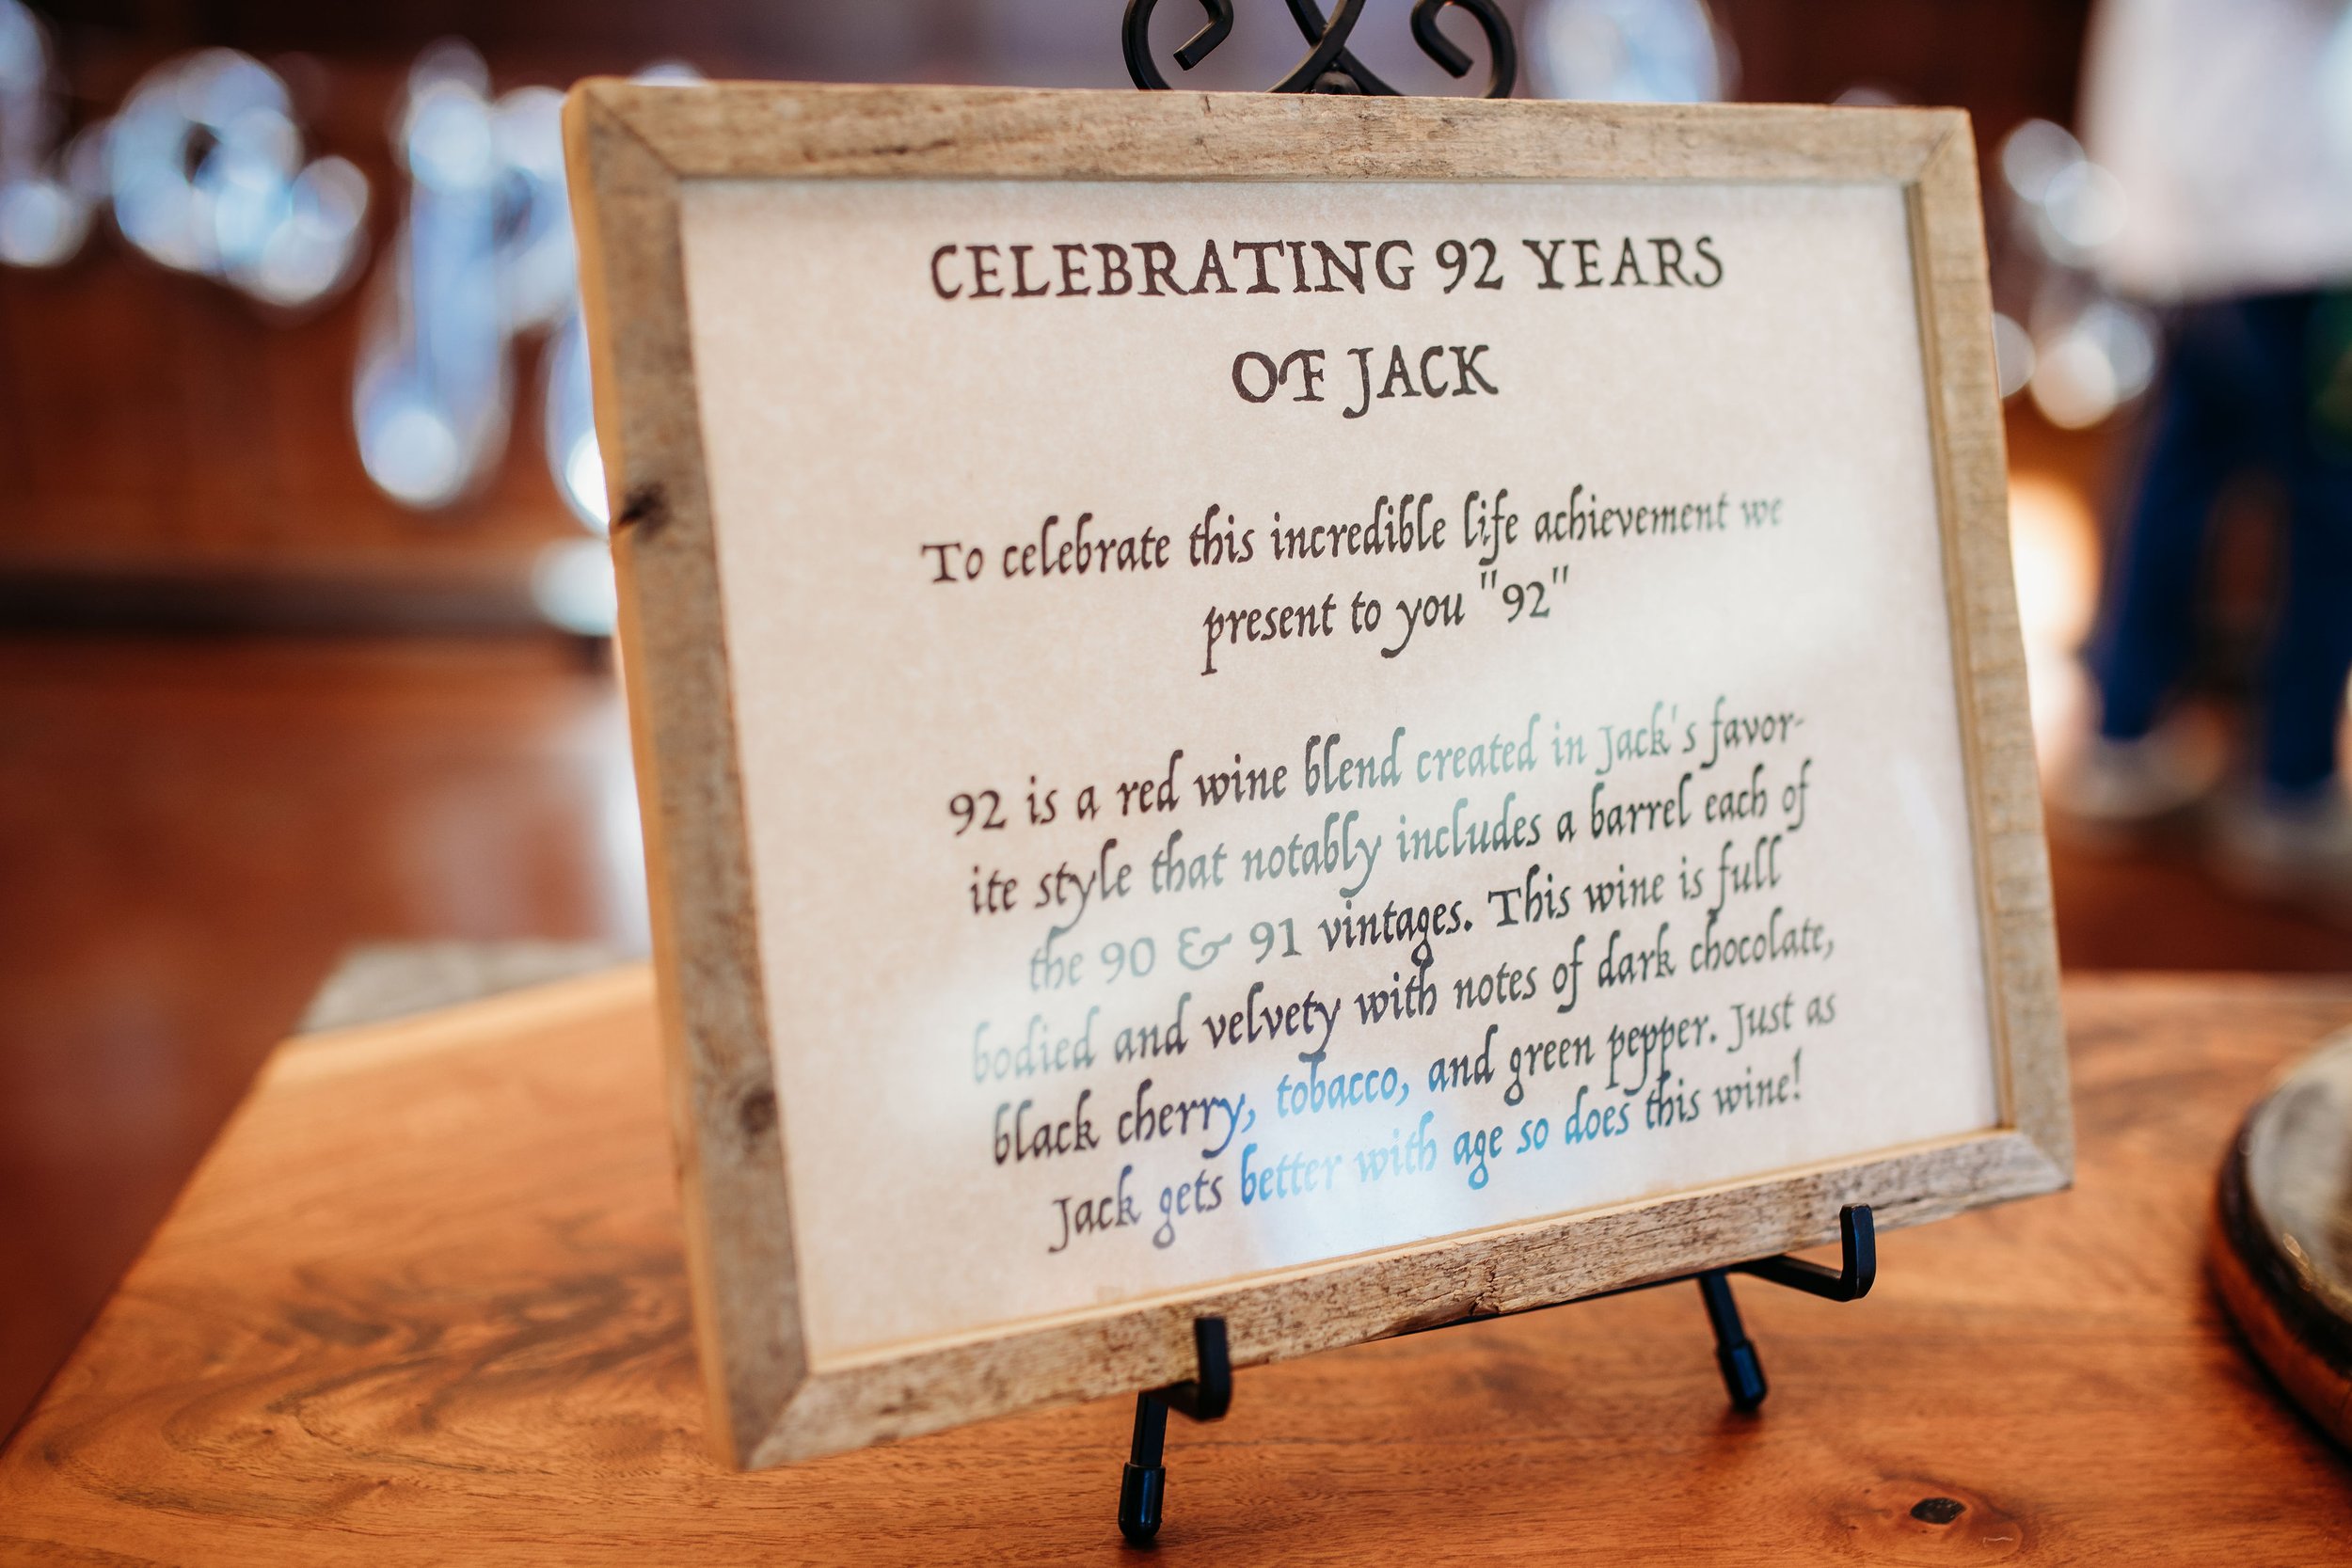 CELEBRATING 92 YEARS
OF JACK
To celebrate this incredible life achievement we
present to you "92"
92 is a red wine blend created in Jack's favor-
ite style that notably includes a barrel each of
the 90 & 91 vintages. This wine is full
bodied and velvety with notes of dark chocolate,
black cherry, tobacco, and green pepper. Just as
Jack gets better with age so does this wine!